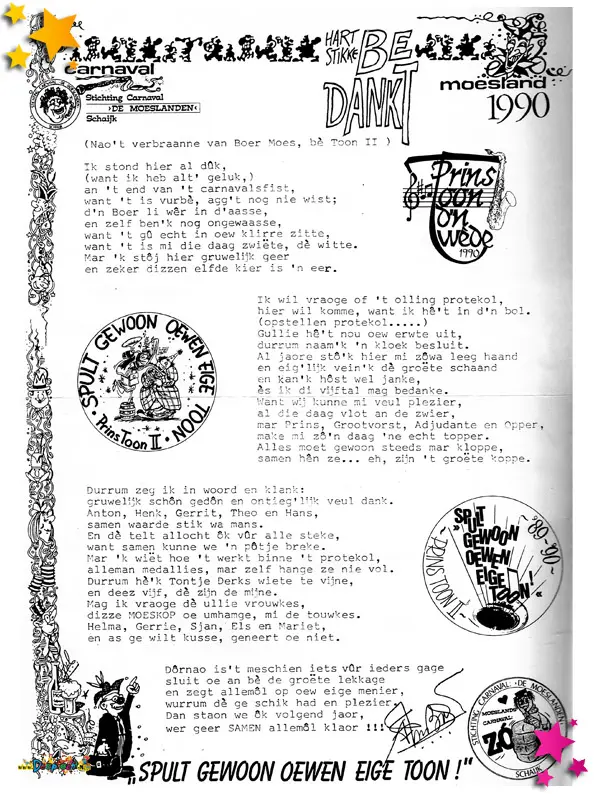 HART
STIKKE
BE
DANKT
carnaval
Stichting Carnaval
›DE MOESLANDEN‹
Schaijk
moesland
1990
(Nao't verbraanne van Boer Moes, bè Toon II )
Prins
Toon
on
wéér
1990
Ik stond hier al dûk,
(want ik heb alt' geluk,)
an 't end van 't carnavalsfist,
want 't is vurbè, agg't nog nie wist;
d'n Boer li wêr in d'aasse,
en zelf ben'k nog ongewaasse,
want 't gû echt in oew klirre zitte,
want 't is mi die daag zwiëte, dè witte.
Mar 'k stôj hier gruwelijk geer
en zeker dizzen elfde kier is 'n eer.
Ik wil vraoge of 't olling protekol,
hier wil komme, want ik hê't in d'n bol.
(opstellen protekol.....)
Gullie hê't nou oew erwte uit,
durrum naam'k 'n kloek besluit.
Al jaore stô'k hier mi zôwa leeg haand
en eig'lijk vein'k dè groëte schaand
en kan'k hôst wel janke,
ès ik di vijftal mag bedanke.
Want wij kunne mi veul plezier,
al die daag vlot an de zwier,
mar Prins, Grootvorst, Adjudante en Opper,
make mi zô'n daag 'ne echt topper.
Alles moet gewoon steeds mar kloppe,
samen hên ze... eh, zijn 't groëte koppe.
SPULT GEWOON OEWEN EIGE TOON
Prins Toon II
Durrum zeg ik in woord en klank:
gruwelijk schôn gedôn en ontieg'lijk veul dank.
Anton, Henk, Gerrit, Theo en Hans,
samen waarde stik wa mans.
En dè telt allocht ôk vûr alle steke,
want samen kunne we 'n pôtje breke.
Mar 'k wiët hoe 't werkt binne 't protekol,
alleman medallies, mar zelf hange ze nie vol.
Durrum hè'k Tontje Derks wiete te vijne,
en deez vijf, dè zijn de mijne.
Mag ik vraoge dè ullie vrouwkes,
dizze MOESKOP oe umhamge, mi de touwkes.
Helma, Gerrie, Sjan, Els en Mariet,
en as ge wilt kusse, geneert oe niet.
"SPULT
GEWOON
OEWEN
EIGE
TOON!"
'89-'90
PRINS TOON II
Dôrnao is't meschien iets vûr ieders gage
sluit oe an bè de groëte lekkage
en zegt allemôl op oew eige menier,
wurrum dè ge schik had en plezier.
Dan staon we ôk volgend jaor,
wer geer SAMEN allemôl klaor !!!
STICHTING CARNAVAL: ›DE MOESLANDEN‹
MOESLANDS
CARNAVAL:
ZÓ
SCHAIJK
„SPULT GEWOON OEWEN EIGE TOON!"